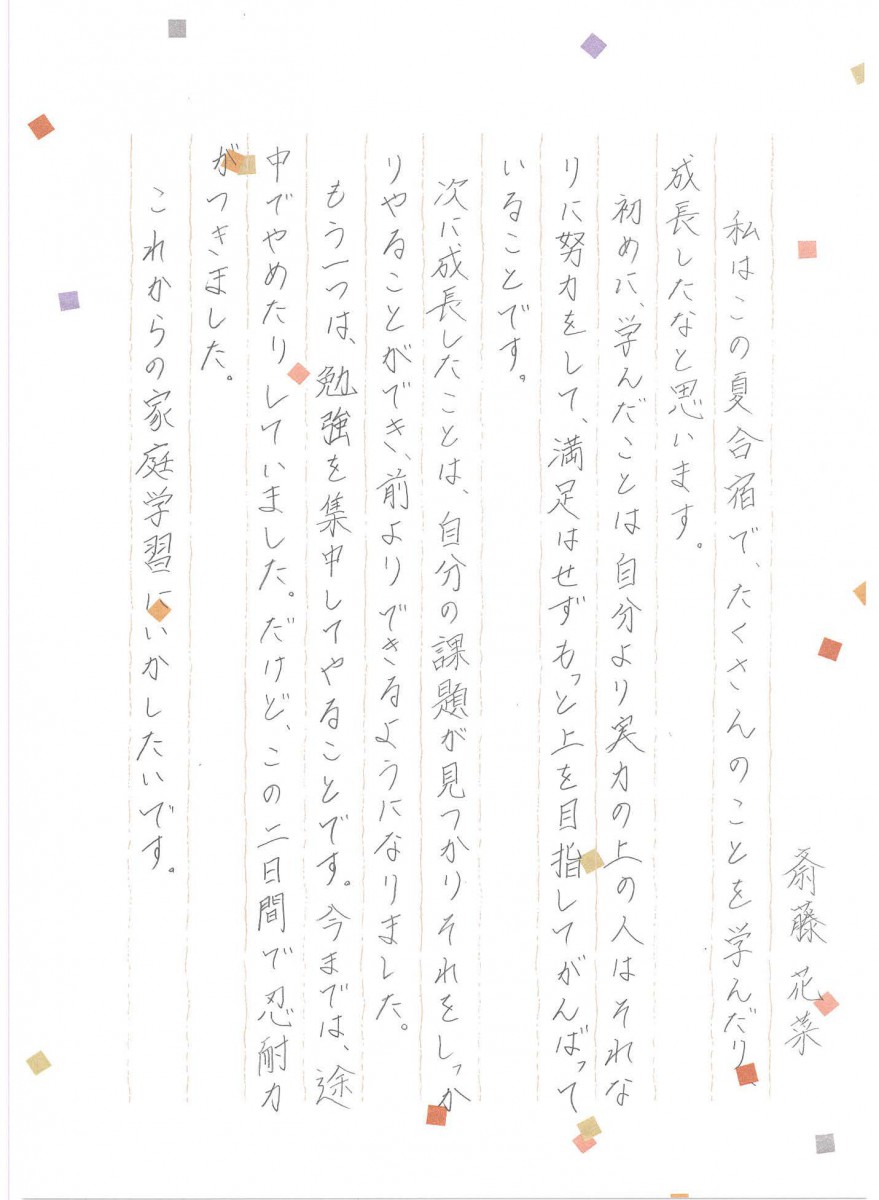 斎藤花菜
私はこの夏合宿で、たくさんのことを学んだり、
成長したなと思います。
初めに、学んだことは自分より実力の上の人はそれな
りに努力をして、満足はせずもっと上を目指してがんばって
いることです。
次に、成長したことは、自分の課題が見つかりそれをしっか
りやることができ、前よりできるようになりました。
もう一つは、勉強を集中してやることです。今までは、途
中でやめたりしていました。だけど、この二日間で忍耐力
がつきました。
これからの家庭学習にいかしたいです。